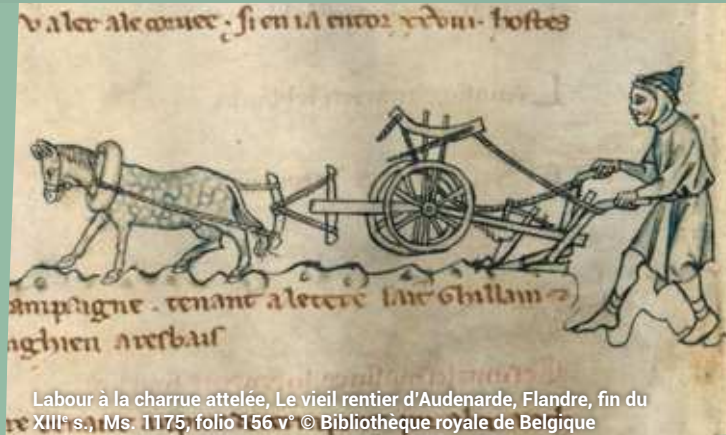 valer ale corvee. si en i a encor xxviii. hostes
ampaigne. tenant a le tere sait Ghillain
nghien a resbais
Labour à la charrue attelée, Le vieil rentier d'Audenarde, Flandre, fin du
XIIIᵉ s., Ms. 1175, folio 156 v° © Bibliothèque royale de Belgique